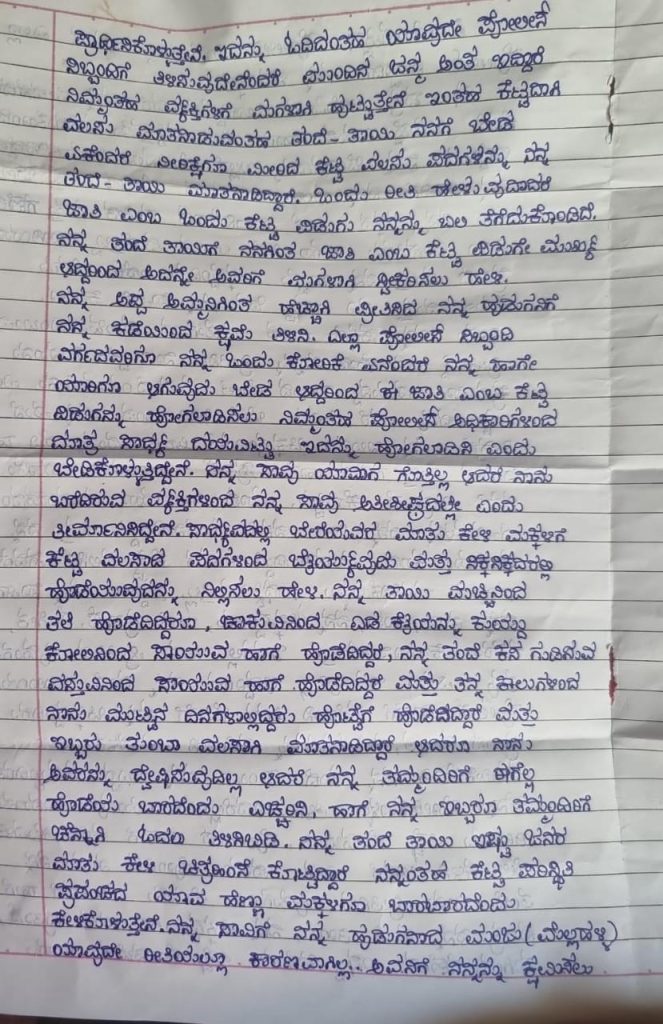 ಪ್ರಾರ್ಥಿಸಿಕೊಳ್ಳುತ್ತೇನೆ. ಇದನ್ನು ಓದಿದಂತಹ ಯಾವುದೇ ಪೋಲೀಸ್
ಸಿಬ್ಬಂದಿಗೆ ತಿಳಿಸುವುದೇನೆಂದರೆ ಮುಂದಿನ ಜನ್ಮ ಅಂತ ಇದ್ದಾರೆ
ನಿಮ್ಮಂತಹ ವ್ಯಕ್ತಿಗಳಿಗೆ ಮಗಳಾಗಿ ಹುಟ್ಟುತ್ತೇನೆ ಇಂತಹ ಕೆಟ್ಟದಾಗಿ
ವಲಸು ಮಾತನಾಡುವಂತಹ ತಂದೆ-ತಾಯಿ ನನಗೆ ಬೇಡ
ಏಕೆಂದರೆ ಮೀರಿದ ಕೆಟ್ಟ ವಲಸು ಪದಗಳನ್ನು ನನ್ನ
ತಂದೆ-ತಾಯಿ ಮಾತನಾಡಿದ್ದಾರೆ. ಒಂದು ರೀತಿ ಹೇಳುವುದಾದರೆ
ಜಾತಿ ಎಂಬ ಒಂದು ಕೆಟ್ಟ ಪಿಡುಗು ನನ್ನನ್ನು ಬಲಿ ತೆಗೆದುಕೊಂಡಿದೆ.
ನನ್ನ ತಂದೆ ತಾಯಿಗೆ ನನಗಿಂತ ಜಾತಿ ಎಂಬ ಕೆಟ್ಟ ಪಿಡುಗೇ ಮುಖ್ಯ
ಆದ್ದರಿಂದ ಅದನ್ನೇ ಅವರಿಗೆ ಮಗಳಾಗಿ ಸ್ವೀಕರಿಸಲು ಹೇಳಿ.
ನನ್ನ ಅಪ್ಪ ಅಮ್ಮನಿಗಿಂತ ಹೆಚ್ಚಾಗಿ ಪ್ರೀತಿಸಿದ ನನ್ನ ಹುಡುಗನಿಗೆ
ನನ್ನ ಕಡೆಯಿಂದ ಕ್ಷಮೆ ತಿಳಿಸಿ. ಎಲ್ಲಾ ಪೋಲೀಸ್ ಸಿಬ್ಬಂದಿ
ವರ್ಗದವರಿಗೂ ನನ್ನ ಒಂದು ಕೋರಿಕೆ ಏನೆಂದರೆ ನನ್ನ ಹಾಗೇ
ಯಾರಿಗೂ ಆಗುವುದು ಬೇಡ ಆದ್ದರಿಂದ ಈ ಜಾತಿ ಎಂಬ ಕೆಟ್ಟ
ಪಿಡುಗನ್ನು ಹೋಗಲಾಡಿಸಲು ನಿಮ್ಮಂತಹ ಪೋಲೀಸ್ ಅಧಿಕಾರಿಗಳಿಂದ
ಮಾತ್ರ ಸಾಧ್ಯ ದಯವಿಟ್ಟು ಇದನ್ನು ಹೋಗಲಾಡಿಸಿ ಎಂದು
ಬೇಡಿಕೊಳ್ಳುತ್ತಿದ್ದೇನೆ. ನನ್ನ ಸಾವು ಯಾವಾಗ ಗೊತ್ತಿಲ್ಲ ಆದರೆ ನಾನು
ಬರೆದಿರುವ ವ್ಯಕ್ತಿಗಳಿಂದ ನನ್ನ ಸಾವು ಅತೀಶೀಘ್ರದಲ್ಲೇ ಎಂದು
ತೀರ್ಮಾನಿಸಿದ್ದೇನೆ. ಸಾಧ್ಯವಾದಲ್ಲಿ ಬೇರೆಯವರ ಮಾತು ಕೇಳಿ ಮಕ್ಕಳಿಗೆ
ಕೆಟ್ಟ ವಲಸಾದ ಪದಗಳಿಂದ ಬೈಯುವುದು ಮತ್ತು
ಹೊಡೆಯುವುದನ್ನು ನಿಲ್ಲಿಸಲು ಹೇಳಿ. ನನ್ನ ತಾಯಿ ಮಚ್ಚಿನಿಂದ
ತಲೆ ಹೊಡೆದಿದ್ದರೂ, ಚಾಕುವಿನಿಂದ ಎಡ ಕೈಯನ್ನು ಕುಯ್ದು
ಕೋಲಿನಿಂದ ಸಾಯುವ ಹಾಗೆ ಹೊಡೆದಿದ್ದರೆ, ನನ್ನ ತಂದೆ ಕಸ ಗುಡಿಸುವ
ವಸ್ತುವಿನಿಂದ ಸಾಯುವ ಹಾಗೆ ಹೊಡೆದಿದ್ದರೆ ಮತ್ತು ತನ್ನ ಕಾಲುಗಳಿಂದ
ನಾನು ಮುಟ್ಟಿನ ದಿನಗಳಲ್ಲಿದ್ದರು ಹೊಟ್ಟೆಗೆ ಹೊಡೆದಿದ್ದಾರೆ ಮತ್ತು
ಇಬ್ಬರು ತುಂಬಾ ವಲಸಾಗಿ ಮಾತನಾಡಿದ್ದಾರೆ ಆದರೂ ನಾನು
ಅವರನ್ನು ದ್ವೇಷಿಸುವುದಿಲ್ಲ ಆದರೆ ನನ್ನ ತಮ್ಮಂದಿರಿಗೆ ಈಗೆಲ್ಲ
ಹೊಡೆಯ ಬಾರದೆಂದು ಎಚ್ಚರಿಸಿ, ಹಾಗೆ ನನ್ನ ಇಬ್ಬರೂ ತಮ್ಮಂದಿರಿಗೆ
ಚೆನ್ನಾಗಿ ಓದಲು ತಿಳಿಸಿಬಿಡಿ. ನನ್ನ ತಂದೆ ತಾಯಿ ಇಷ್ಟು ಜನರ
ಮಾತು ಕೇಳಿ ಚಿತ್ರಹಿಂಸೆ ಕೊಟ್ಟಿದ್ದಾರೆ ನನ್ನಂತಹ ಕೆಟ್ಟ ಪರಿಸ್ಥಿತಿ
ಪ್ರಪಂಚದ ಯಾವ ಹೆಣ್ಣು ಮಕ್ಕಳಿಗೂ ಬಾರಬಾರದೆಂದು
ಕೇಳಿಕೊಳ್ಳುತ್ತೇನೆ. ನನ್ನ ಸಾವಿಗೆ ನನ್ನ ಹುಡುಗನಾದ ಮಂಜು (ಮಲ್ಲಹಳ್ಳಿ)
ಯಾವುದೇ ರೀತಿಯಲ್ಲೂ ಕಾರಣವಾಗಿಲ್ಲ. ಅವನಿಗೆ ನನ್ನನ್ನು ಕ್ಷಮಿಸಲು